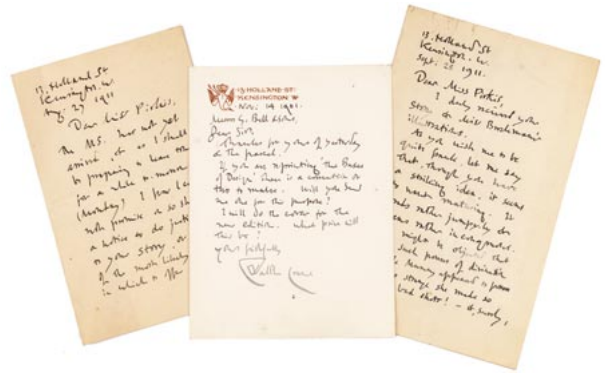 13. Holland St
Kensington. W.
Aug. 27 1911
Dear Miss Pirkis,
The M.S. has not yet
arrived, & as I shall
be preparing to leave town
for a while to-morrow
(Monday) I fear I can
not promise
a notice to do justice
to your story, or
the most likely
in which to offer
13 HOLLAND ST:
KENSINGTON W
Nov. 14 1901.
Messrs G. Bell & Sons.
Dear Sirs,
Thanks for yours of yesterday
& the parcel.
If you are reprinting 'The Bases
of Design' there is a correction or
two to make. Will you send
me one for this purpose?
I will do the cover for the
new edition. What price will
this be?
yours faithfully
Walter Crane
13. Holland St
Kensington. W.
Sept. 25 1911.
Dear Miss Pirkis,
I duly received your
story & Miss
illustrations.
As you wish me to be
quite frank, let me say
that though you have
a striking idea, it seems
to want maturing. It
rather
rather
might be objected that
such powers of
appeared to
strange she made so
bad shots! - it, surely,